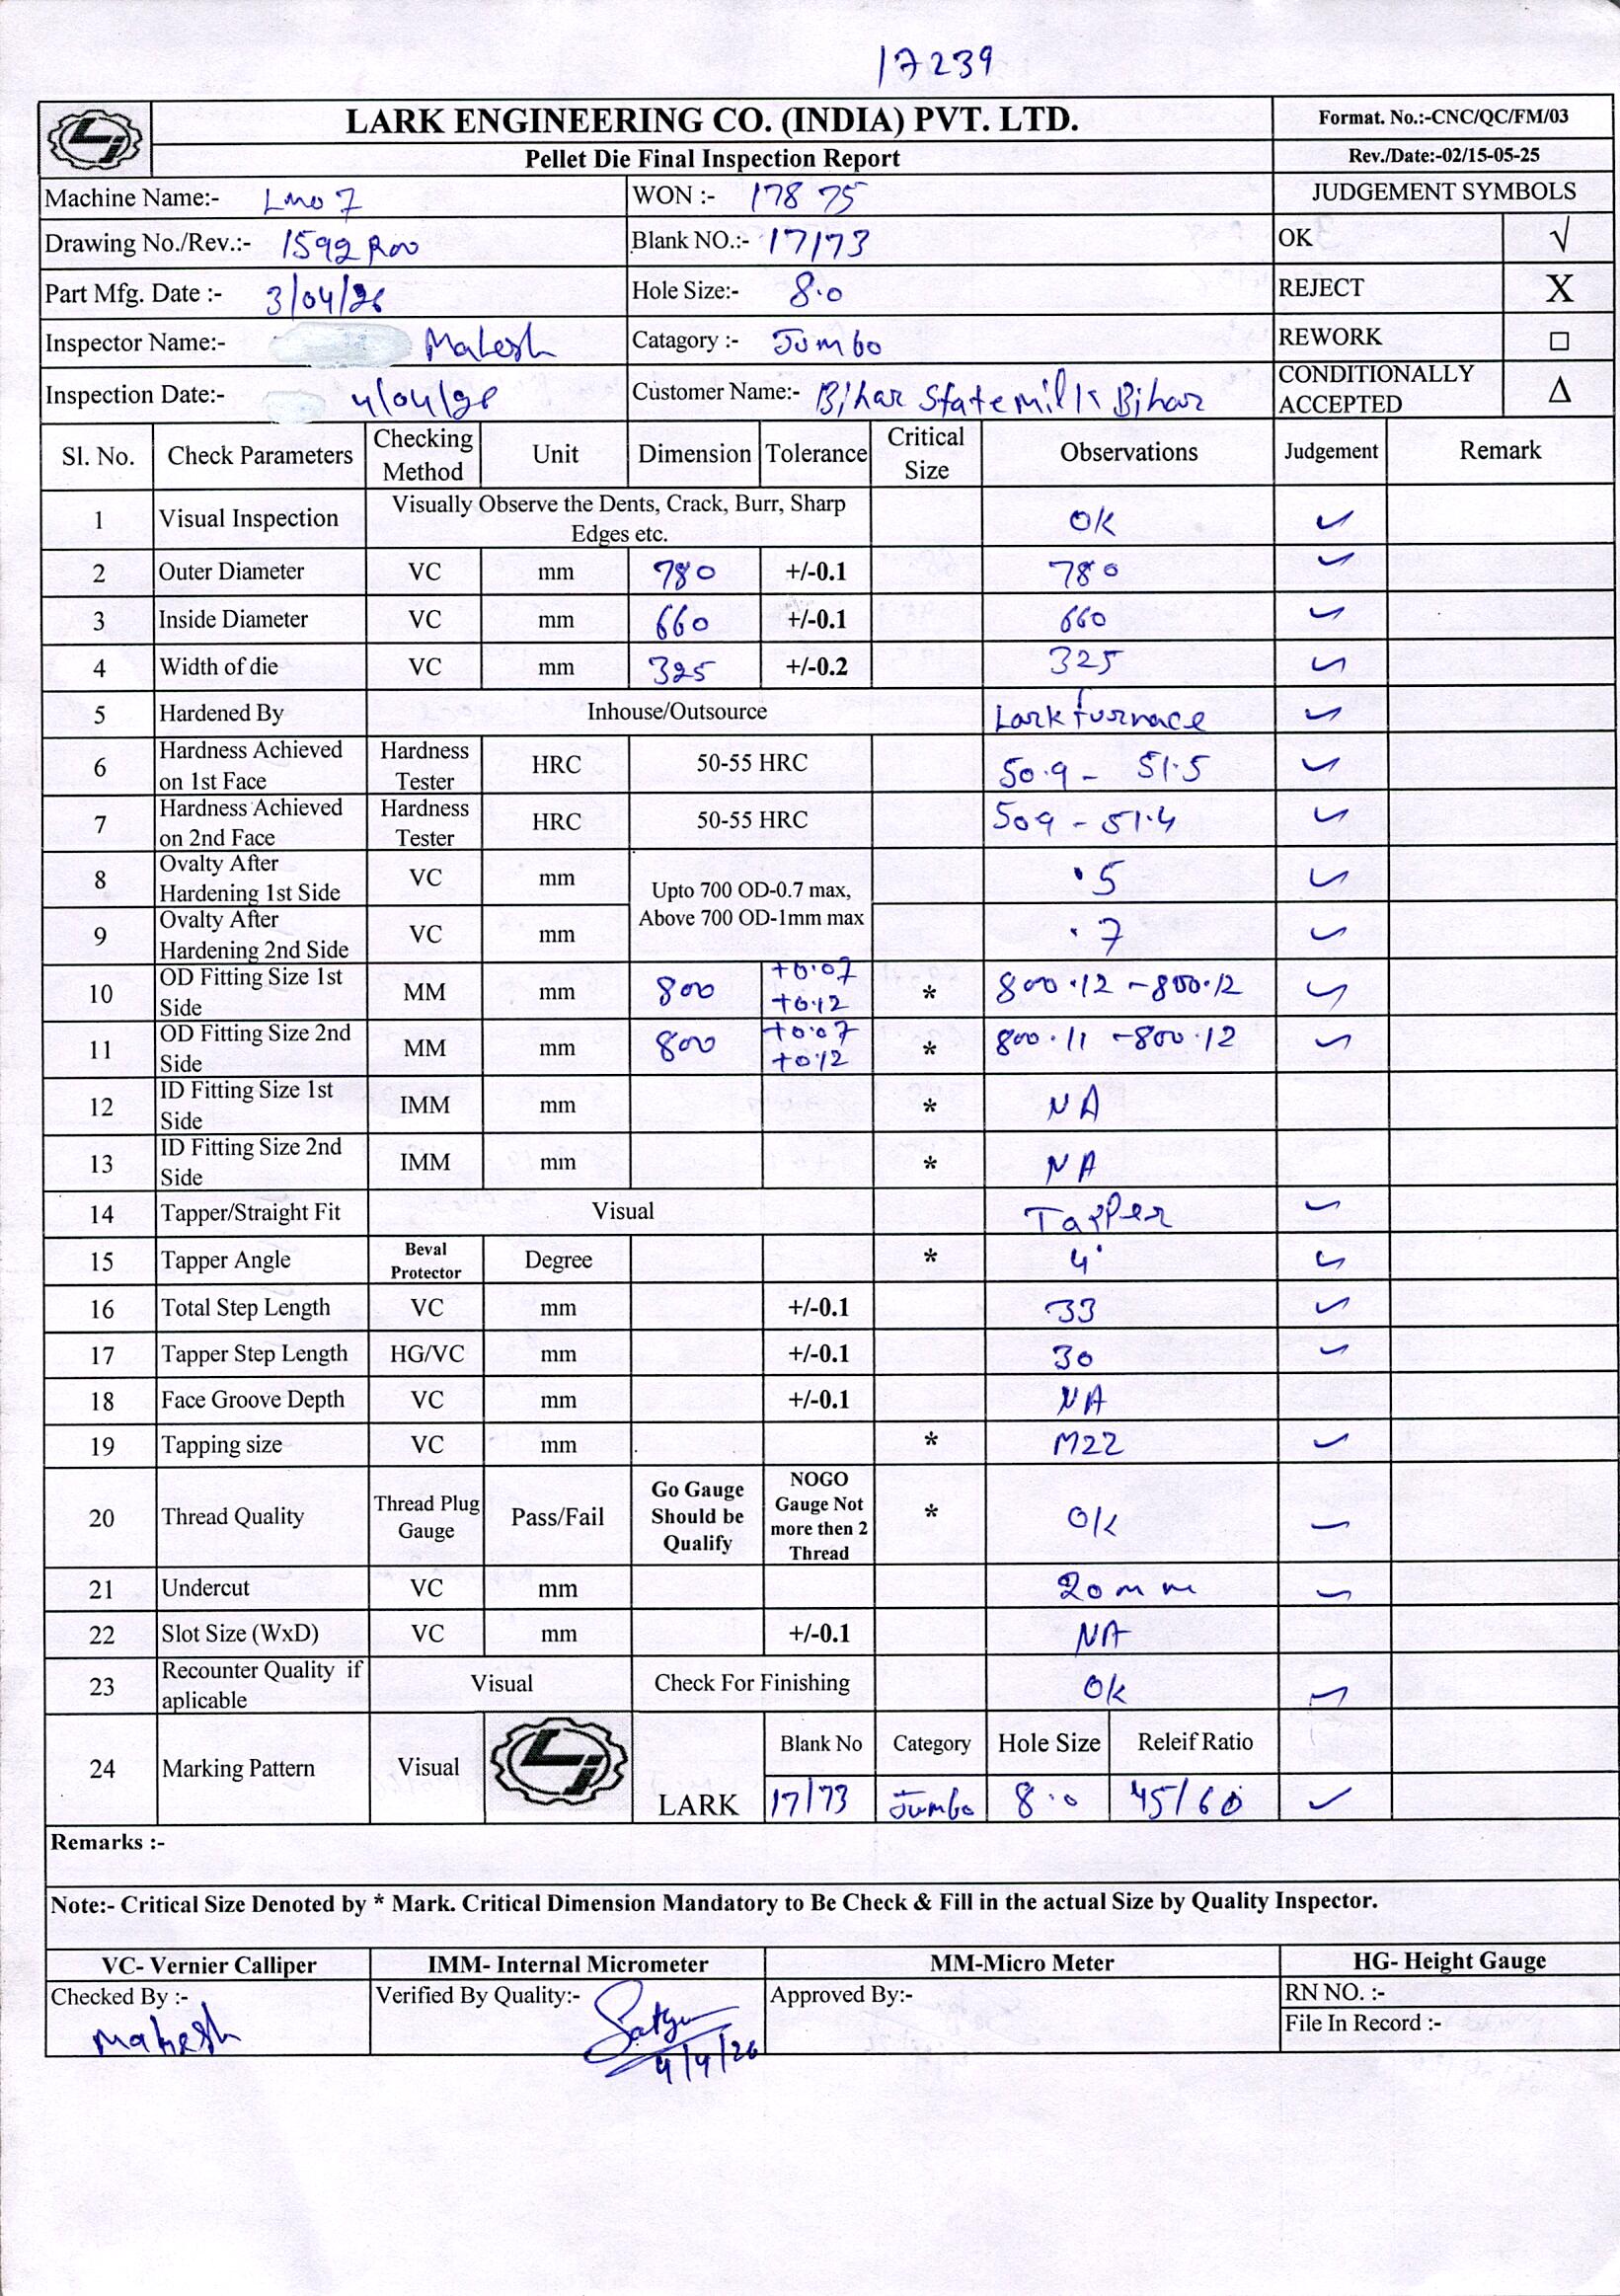 17239
LARK ENGINEERING CO. (INDIA) PVT. LTD.
Format. No.:-CNC/QC/FM/03
Pellet Die Final Inspection Report
Rev./Date:-02/15-05-25
Machine Name:-
WON :- 17875
JUDGEMENT SYMBOLS
Drawing No./Rev.:- 1592 R00
Blank NO.:- 17/73
OK √
Part Mfg. Date :- 3/04/26
Hole Size:- 8.0
REJECT X
Inspector Name:- Mahesh
Catagory :- Jumbo
REWORK □
Inspection Date:- 4/04/26
Customer Name:- Bihar State milk Bihar
CONDITIONALLY ACCEPTED Δ
Sl. No. Check Parameters Checking Method Unit Dimension Tolerance Critical Size Observations Judgement Remark
1 Visual Inspection Visually Observe the Dents, Crack, Burr, Sharp Edges etc. OK ✓
2 Outer Diameter VC mm 780 +/-0.1 780 ✓
3 Inside Diameter VC mm 660 +/-0.1 660 ✓
4 Width of die VC mm 325 +/-0.2 325 ✓
5 Hardened By Inhouse/Outsource Lark furnace ✓
6 Hardness Achieved on 1st Face Hardness Tester HRC 50-55 HRC 50.9 - 51.5 ✓
7 Hardness Achieved on 2nd Face Hardness Tester HRC 50-55 HRC 509 - 51.4 ✓
8 Ovalty After Hardening 1st Side VC mm Upto 700 OD-0.7 max, Above 700 OD-1mm max .5 ✓
9 Ovalty After Hardening 2nd Side VC mm .7 ✓
10 OD Fitting Size 1st Side MM mm 800 +0.07 +0.12 * 800.12 - 800.12 ✓
11 OD Fitting Size 2nd Side MM mm 800 +0.07 +0.12 * 800.11 - 800.12 ✓
12 ID Fitting Size 1st Side IMM mm * NA
13 ID Fitting Size 2nd Side IMM mm * NA
14 Tapper/Straight Fit Visual Tapper ✓
15 Tapper Angle Beval Protector Degree * 4° ✓
16 Total Step Length VC mm +/-0.1 33 ✓
17 Tapper Step Length HG/VC mm +/-0.1 30 ✓
18 Face Groove Depth VC mm +/-0.1 NA
19 Tapping size VC mm * M22 ✓
20 Thread Quality Thread Plug Gauge Pass/Fail Go Gauge Should be Qualify NOGO Gauge Not more then 2 Thread * Ok ✓
21 Undercut VC mm 20mm ✓
22 Slot Size (WxD) VC mm +/-0.1 NA
23 Recounter Quality if aplicable Visual Check For Finishing Ok ✓
24 Marking Pattern Visual LARK
Blank No Category Hole Size Releif Ratio
17/73 Jumbo 8.0 45/60 ✓
Remarks :-
Note:- Critical Size Denoted by * Mark. Critical Dimension Mandatory to Be Check & Fill in the actual Size by Quality Inspector.
VC- Vernier Calliper IMM- Internal Micrometer MM-Micro Meter HG- Height Gauge
Checked By :- Mahesh
Verified By Quality:- 4/4/26
Approved By:-
RN NO. :-
File In Record :-